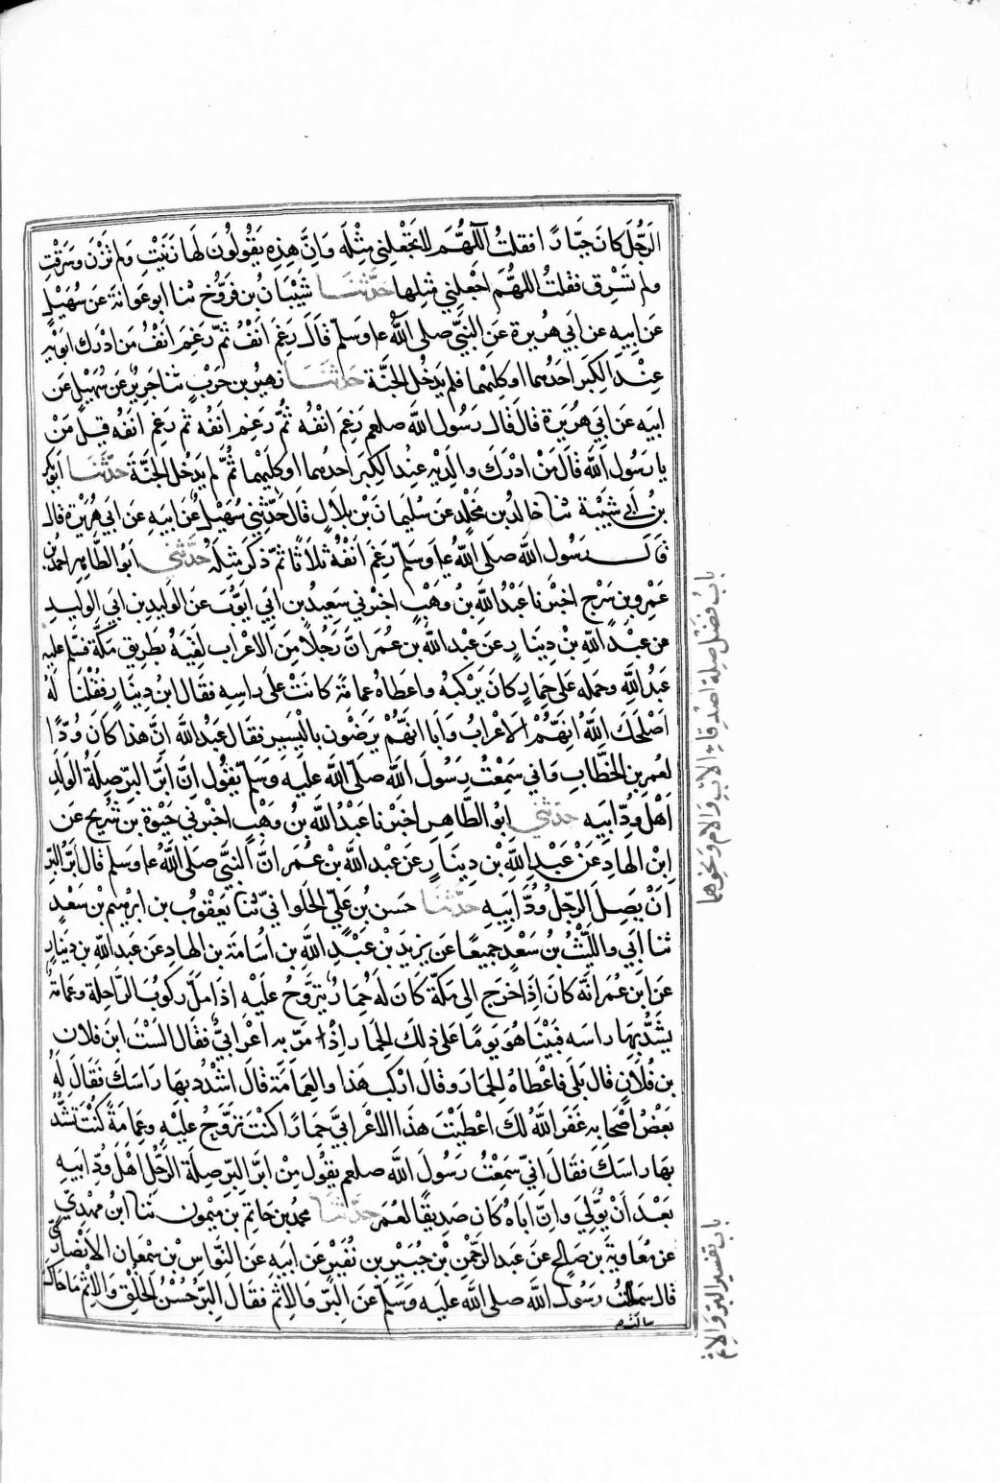 الرجل كان جبارا فقلت اللهم لا تجعلني مثله وان هذه يقولون لها زنيت ولم تزن وسرقت
ولم تسرق فقلت اللهم اجعلني مثلها حدثنا شيبان بن فروخ ثنا ابو عوانة عن سهيل
عن ابيه عن ابي هريرة عن النبي صلى الله عله وسلم قال رغم انف ثم رغم انف من ادرك ابويه
عند الكبر احدهما او كليهما فلم يدخل الجنة حدثنا زهير بن حرب ثنا جرير عن سهيل عن
ابيه عن ابي هريرة قال قال رسول الله صلعم رغم انفه ثم رغم انفه ثم رغم انفه قيل من
يا رسول الله قال من ادرك والديه عند الكبر احدهما او كليهما ثم لم يدخل الجنة حدثنا ابو بكر
بن ابي شيبة ثنا خالد بن مخلد عن سليمان بن بلال قال حدثني سهيل عن ابيه عن ابي هريرة قال
قال رسول الله صلى الله عله وسلم رغم انفه ثلاثا ثم ذكر مثله حدثني ابو الطاهر احمد بن
عمرو بن سرح اخبرنا عبد الله بن وهب اخبرني سعيد بن ابي ايوب عن الوليد بن ابي الوليد
عن عبد الله بن دينار عن عبد الله بن عمر ان رجلا من الاعراب لقيه بطريق مكة فسلم عليه
عبد الله وحمله على حمار كان يركبه واعطاه عمامة كانت على راسه فقال ابن دينار فقلنا له
اصلحك الله انهم الاعراب وانهم يرضون باليسير فقال عبد الله ان هذا كان ودا
لعمر بن الخطاب واني سمعت رسول الله صلى الله عليه وسلم يقول ان ابر البر صلة الولد
اهل ود ابيه حدثني ابو الطاهر اخبرنا عبد الله بن وهب اخبرني حيوة بن شريح عن
ابن الهاد عن عبد الله بن دينار عن عبد الله بن عمر ان النبي صلى الله عله وسلم قال ابر البر
ان يصل الرجل ود ابيه حدثنا حسن بن علي الحلواني ثنا يعقوب بن ابرهيم بن سعد
ثنا ابي والليث بن سعد جميعا عن يزيد بن عبد الله بن اسامة بن الهاد عن عبد الله بن دينار
عن ابن عمر انه كان اذا خرج الى مكة كان له حمار يتروح عليه اذا مل ركوب الراحلة وعمامة
يشد بها راسه فبينا هو يوما على ذلك الحمار اذ مر به اعرابي فقال الست ابن فلان
بن فلان قال بلى فاعطاه الحمار وقال اركب هذا والعمامة قال اشدد بها راسك فقال له
بعض اصحابه غفر الله لك اعطيت هذا الاعرابي حمارا كنت تروح عليه وعمامة كنت تشد
بها راسك فقال اني سمعت رسول الله صلعم يقول من ابر البر صلة الرجل اهل ود ابيه
بعد ان يولي وان اباه كان صديقا لعمر حدثنا محمد بن حاتم بن ميمون ثنا ابن مهدي
عن معاوية بن صالح عن عبد الرحمن بن جبير بن نفير عن ابيه عن النواس بن سمعان الانصاري
قال سالت رسول الله صلى الله عليه وسلم عن البر والاثم فقال البر حسن الخلق والاثم ما حاك
سالت
باب فضل صلة اصدقاء الاب والام ونحوهما
باب تفسير البر والاثم